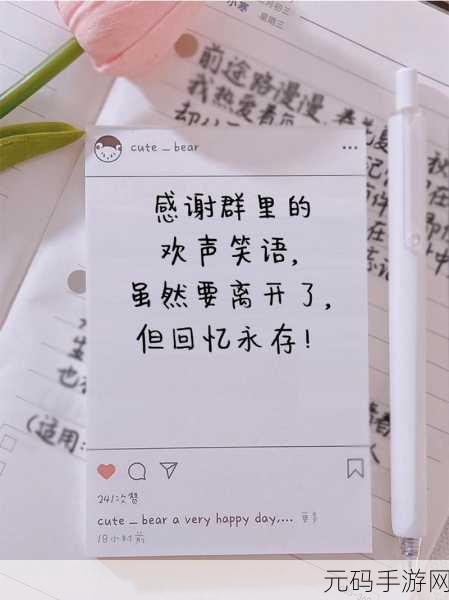 小寒
星期三
前途路漫漫,
我热爱看
cute _ bear
感谢群里的
欢声笑语,
虽然要离开了,
但回忆永存!
(适用
241次赞
cute _ bear a very happy day,... 更多
18小时前
元码手游网